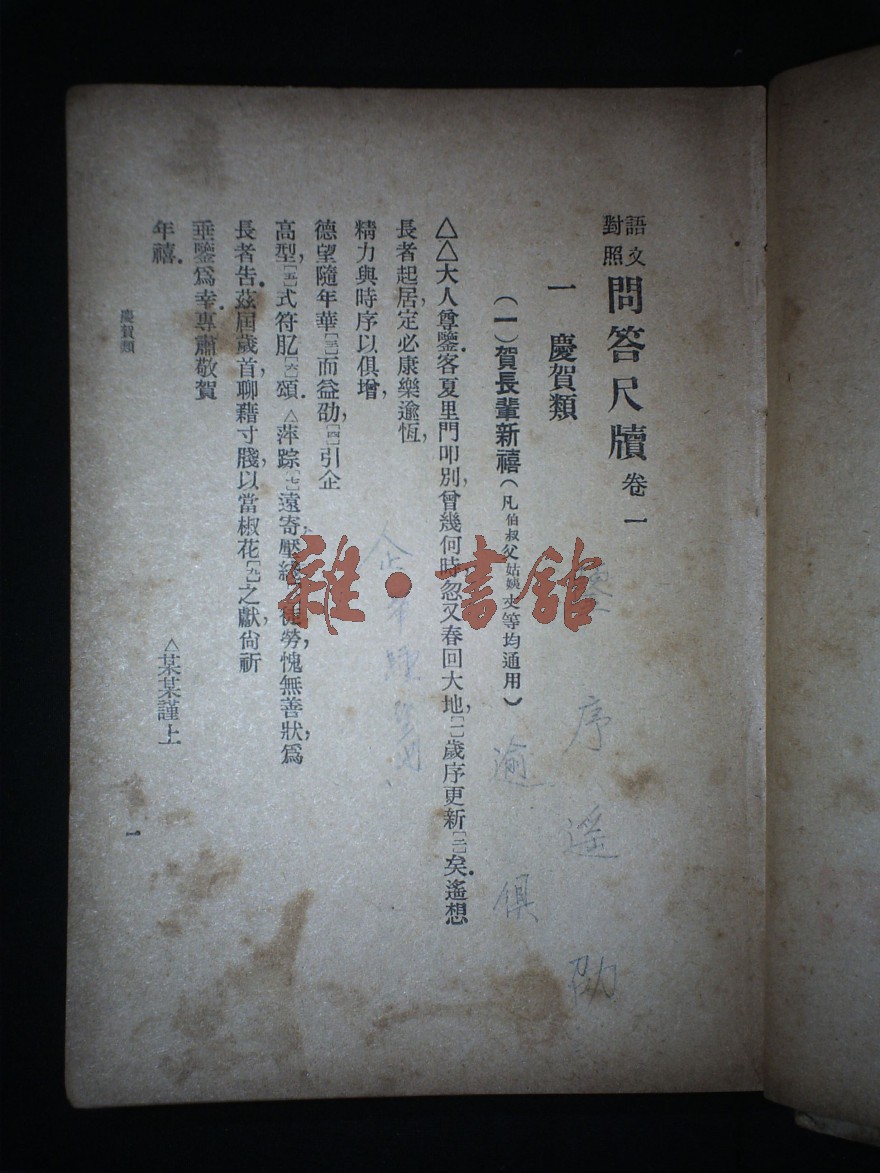 語文對照 問答尺牘 卷一
一 慶賀類
（一）賀長輩新禧（凡伯叔父姑姨丈等均通用）
△△大人尊鑒．客夏里門叩別，曾幾何時，忽又春回大地，［一］歲序更新［二］矣．遙想
長者起居，定必康樂逾恆，
精力與時序以俱增，
德望隨年華［三］而益劭，［四］引企
高型，［五］式符肊［六］頌．△萍踪［七］遠寄，壓綫 徒勞，愧無善狀，爲
長者告．茲屆歲首，聊藉寸牋，以當椒花［九］之獻，尙祈
垂鑒爲幸．專肅敬賀
年禧．
△某某謹上
慶賀類
一
雜·書館
序 遥 劭
逾 俱
企